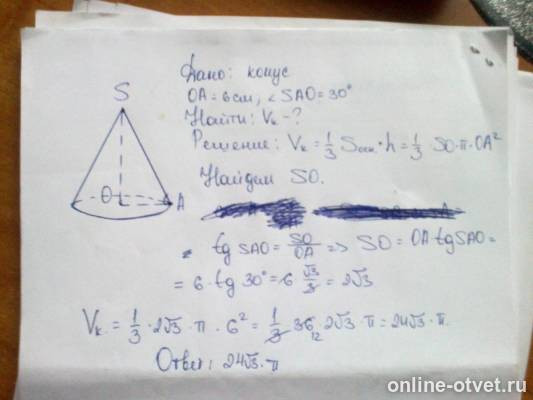 Дано: конус
OA = 6 см, ∠SAO = 30°
Найти: Vк - ?
Решение: Vк = 1/3 Sосн · h = 1/3 SO · π · OA²
Найдем SO.
S
O
A
tg SAO = SO/OA => SO = OA · tg SAO =
= 6 · tg 30° = 6 · √3/3 = 2√3
Vк = 1/3 · 2√3 · π · 6² = 1/3 · 36 12 · 2√3 · π = 24√3 · π.
Ответ: 24√3 · π
online-otvet.ru